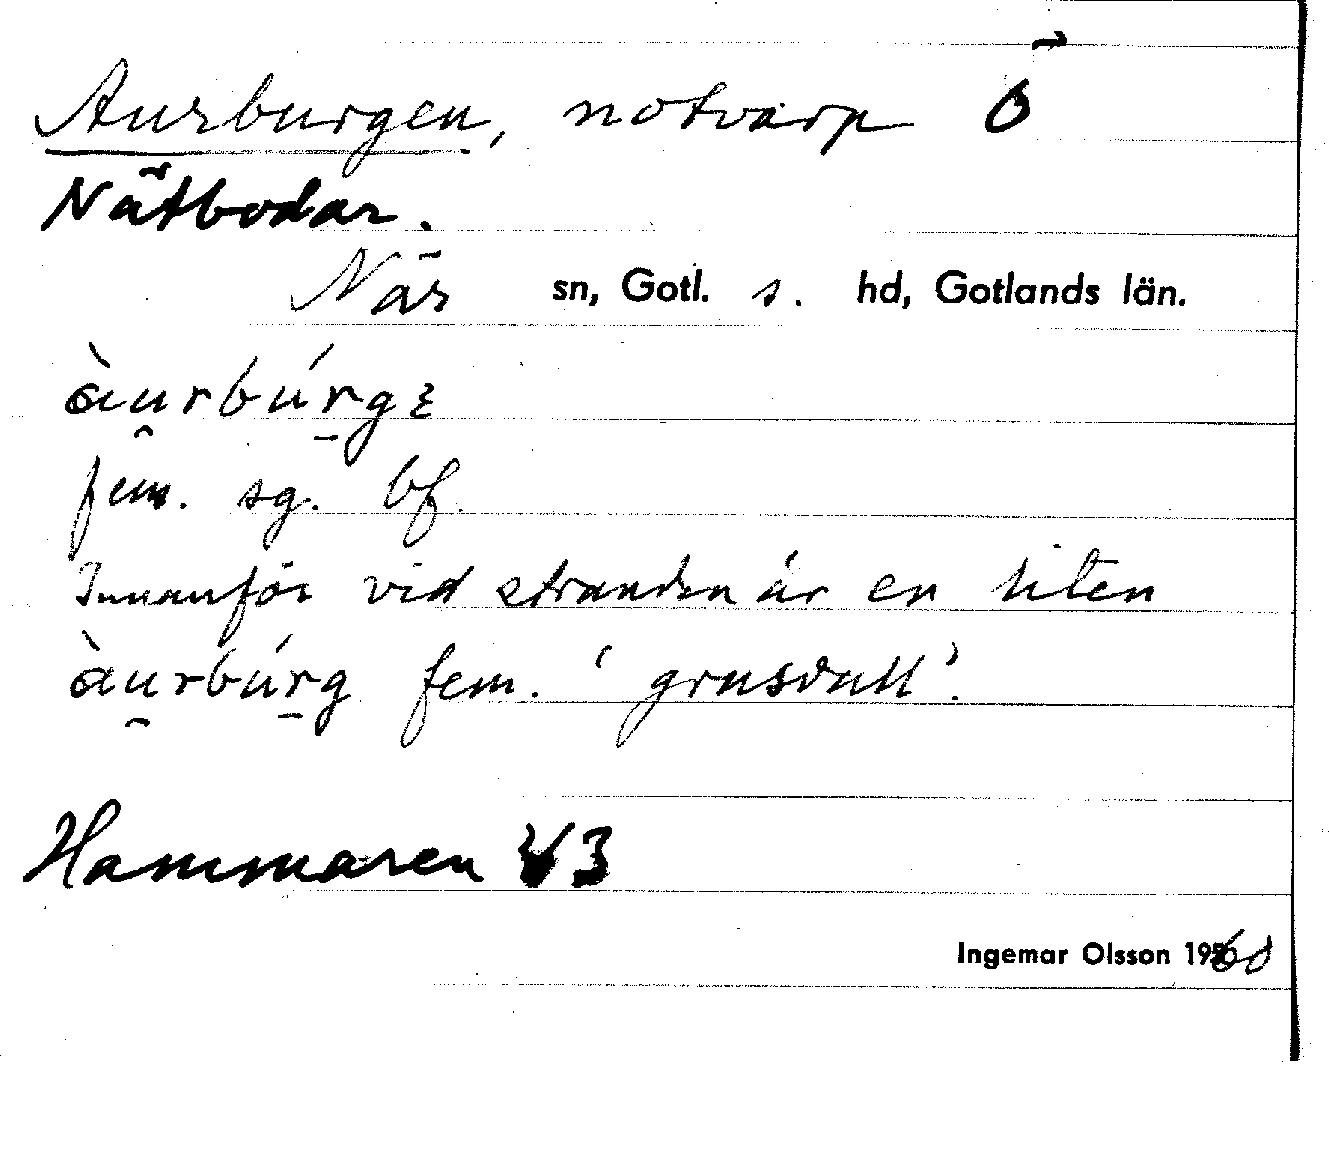 Aurburgen, notvarp Ö
Nätbodar.
När sn, Gotl. s. hd, Gotlands län.
àu̯rbúr̠gɛ
fem. sg. bf.
Innanför vid stranden är en liten
àu̯rbúr̠g fem. 'grusvall'.
Hammaren V3
Ingemar Olsson 1960